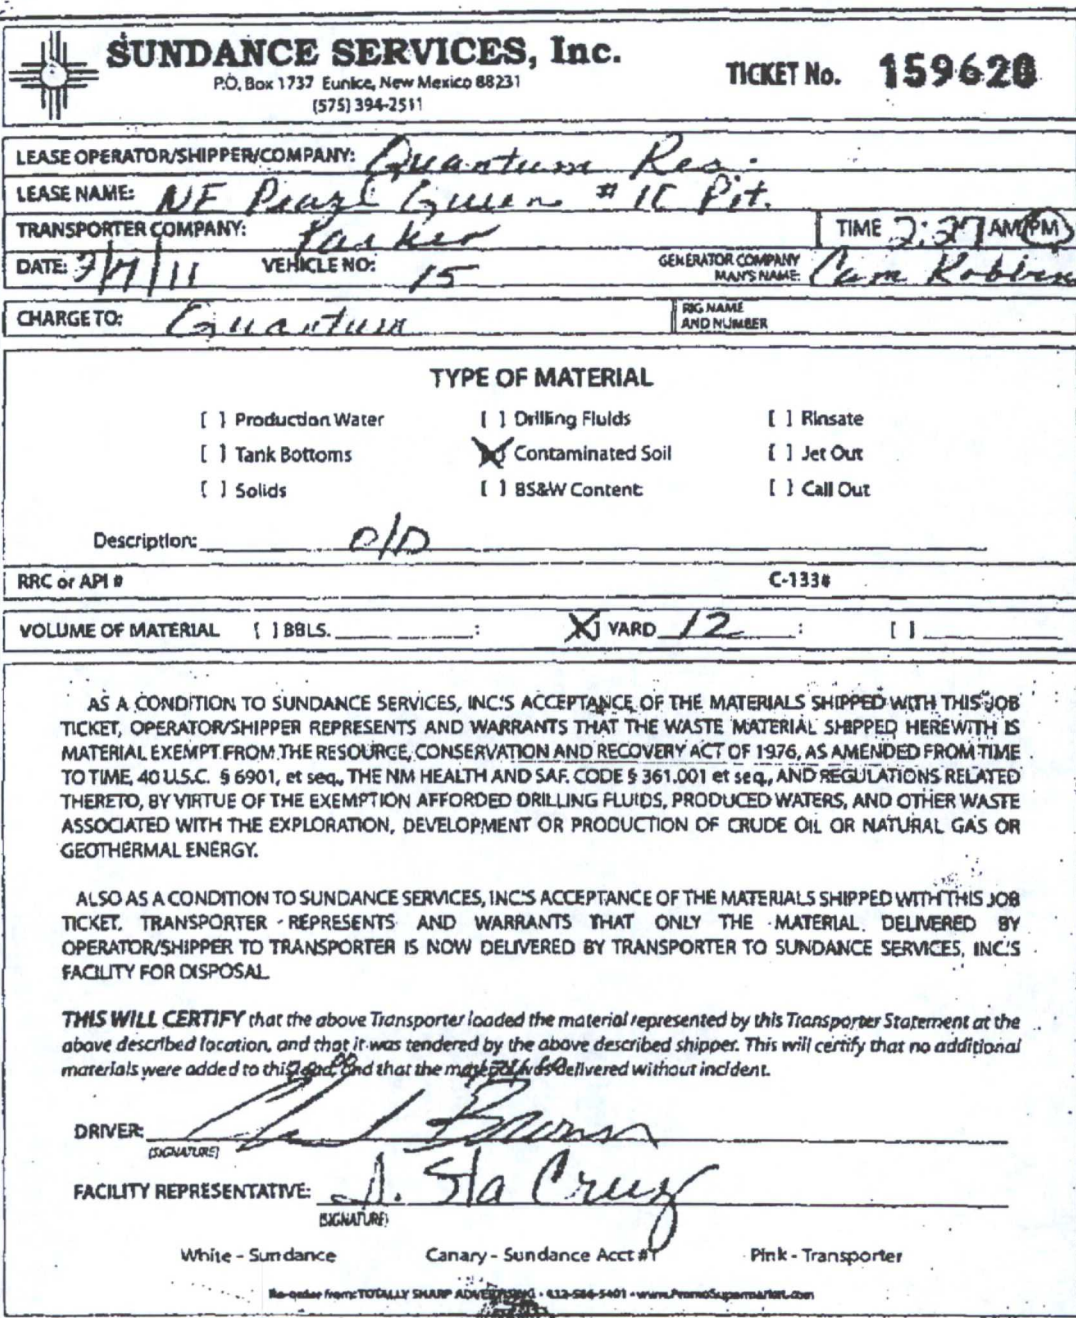 SUNDANCE SERVICES, Inc.
P.O. Box 1737 Eunice, New Mexico 88231
(575) 394-2511
TICKET No. 159628
LEASE OPERATOR/SHIPPER/COMPANY: Quantum Res.
LEASE NAME: NE Pearl Queen # Pit.
TRANSPORTER COMPANY: Parker TIME 2:27 AM PM
DATE: /11 VEHICLE NO: 15 GENERATOR COMPANY MAN'S NAME: Cam Robbins
CHARGE TO: Quantum RIG NAME AND NUMBER
TYPE OF MATERIAL
[ ] Production Water [ ] Drilling Fluids [ ] Rinsate
[ ] Tank Bottoms [X] Contaminated Soil [ ] Jet Out
[ ] Solids [ ] BS&W Content: [ ] Call Out
Description: O/D
RRC or API # C-133#
VOLUME OF MATERIAL [ ] BBLS. : [X] YARD 12 : [ ]
AS A CONDITION TO SUNDANCE SERVICES, INC.'S ACCEPTANCE OF THE MATERIALS SHIPPED WITH THIS JOB
TICKET, OPERATOR/SHIPPER REPRESENTS AND WARRANTS THAT THE WASTE MATERIAL SHIPPED HEREWITH IS
MATERIAL EXEMPT FROM THE RESOURCE, CONSERVATION AND RECOVERY ACT OF 1976, AS AMENDED FROM TIME
TO TIME, 40 U.S.C. § 6901, et seq., THE NM HEALTH AND SAF. CODE § 361.001 et seq., AND REGULATIONS RELATED
THERETO, BY VIRTUE OF THE EXEMPTION AFFORDED DRILLING FLUIDS, PRODUCED WATERS, AND OTHER WASTE
ASSOCIATED WITH THE EXPLORATION, DEVELOPMENT OR PRODUCTION OF CRUDE OIL OR NATURAL GAS OR
GEOTHERMAL ENERGY.
ALSO AS A CONDITION TO SUNDANCE SERVICES, INC.'S ACCEPTANCE OF THE MATERIALS SHIPPED WITH THIS JOB
TICKET, TRANSPORTER REPRESENTS AND WARRANTS THAT ONLY THE MATERIAL DELIVERED BY
OPERATOR/SHIPPER TO TRANSPORTER IS NOW DELIVERED BY TRANSPORTER TO SUNDANCE SERVICES, INC.'S
FACILITY FOR DISPOSAL
THIS WILL CERTIFY that the above Transporter loaded the material represented by this Transporter Statement at the
above described location, and that it was tendered by the above described shipper. This will certify that no additional
materials were added to this load, and that the material was delivered without incident.
DRIVER:
(SIGNATURE)
FACILITY REPRESENTATIVE: Sta Cruz
(SIGNATURE)
White - Sundance Canary - Sundance Acct #1 Pink - Transporter
Re-order from: TOTALLY SHARP ADVERTISING • 432-586-5401 • www.PromoSupermarket.com